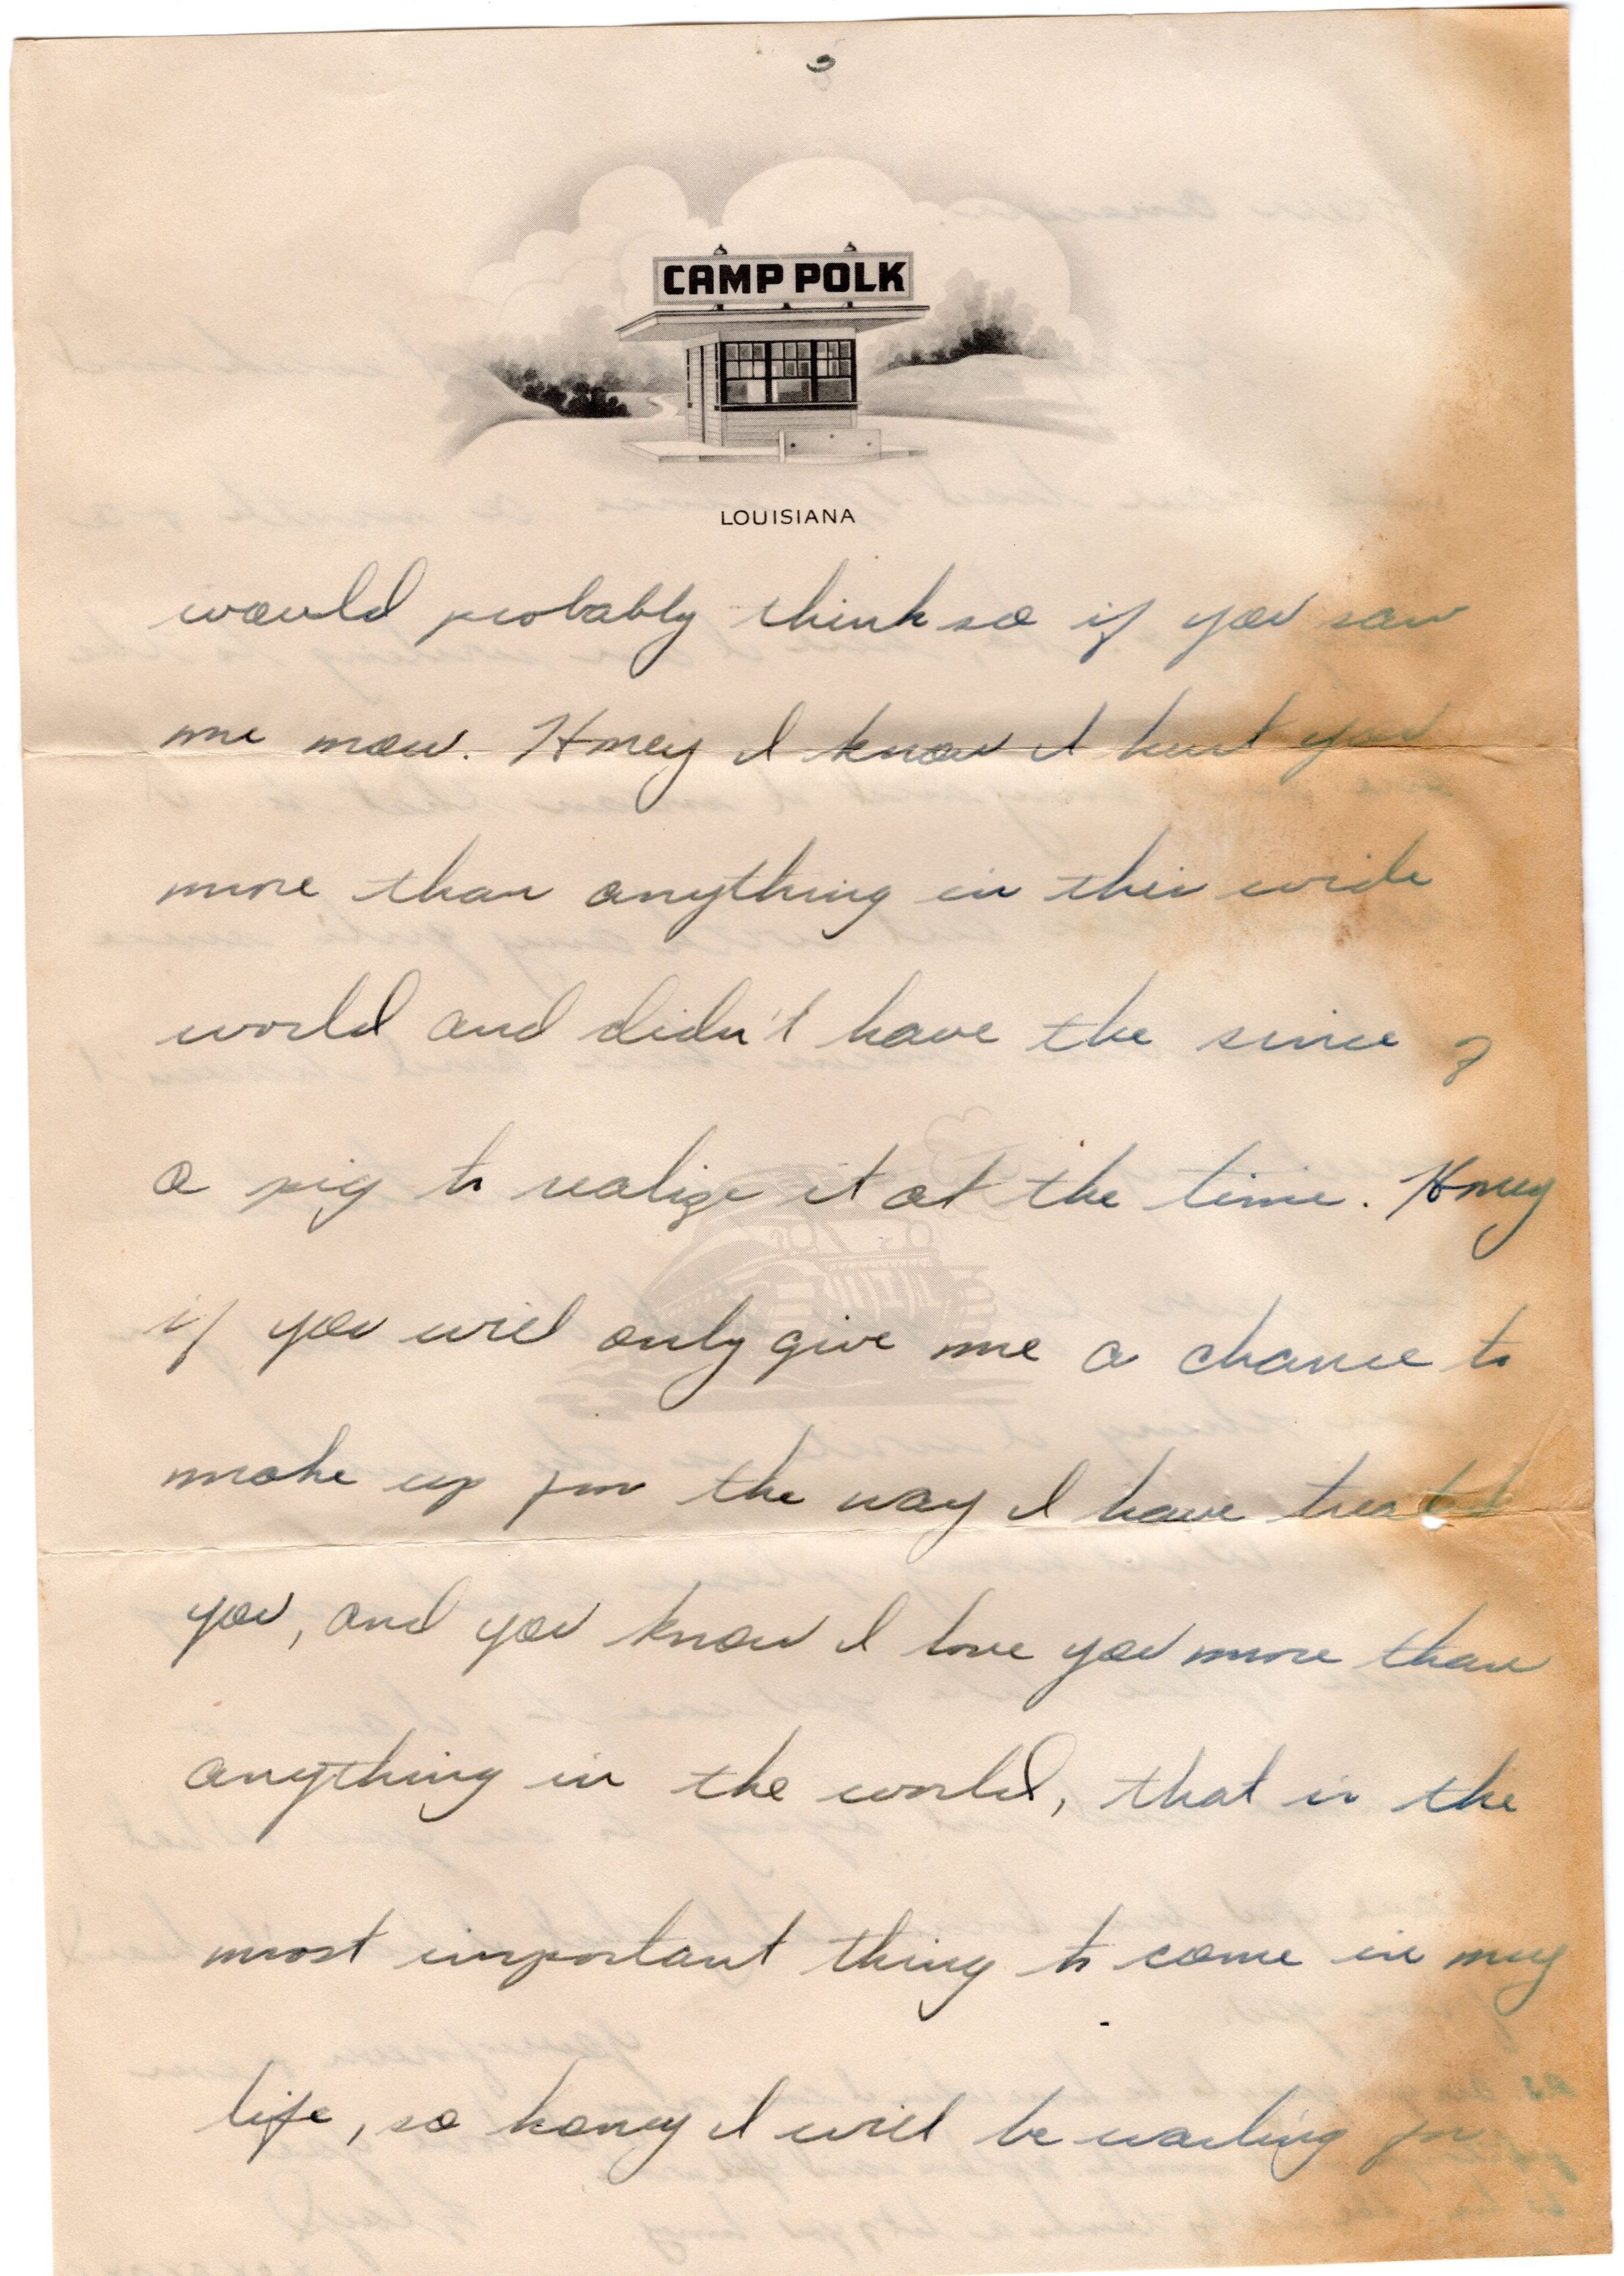 3
CAMP POLK
LOUISIANA
would probably think so if you saw
me now. Honey I know I hurt you
more than anything in this wide
world and didn't have the since of
a pig to realize it at the time. Honey
if you will only give me a chance to
make up for the way I have treated
you, and you know I love you more than
anything in the world, that is the
most important thing to come in my
life, so honey I will be waiting for